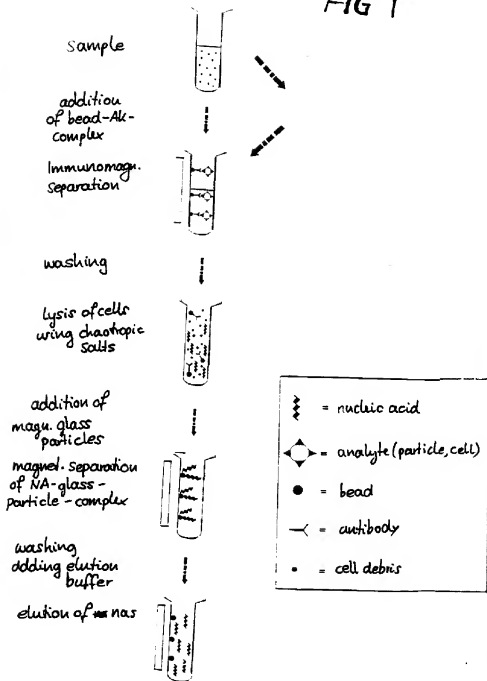 FIG 1
sample
addition
of bead-Ak-
complex
Immunomagn.
separation
washing
lysis of cells
using chaotropic
salts
addition of
magn. glass
particles
magnet. separation
of NA-glass-
particle-complex
washing
adding elution
buffer
elution of nas
= nucleic acid
= analyte (particle, cell)
= bead
= antibody
= cell debris